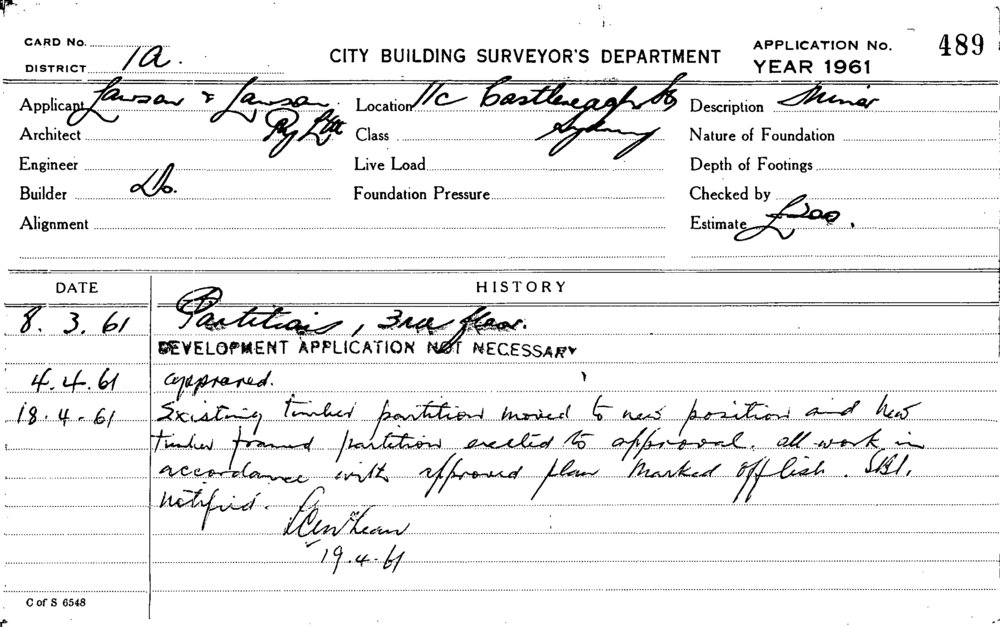 CARD No.
DISTRICT 1A.
CITY BUILDING SURVEYOR'S DEPARTMENT
APPLICATION No. 489
YEAR 1961
Applicant Lawson & Lawson Pty Ltd
Location 11c Castlereagh St Sydney
Description Minor
Architect
Class
Nature of Foundation
Engineer
Live Load
Depth of Footings
Builder Do.
Foundation Pressure
Checked by
Alignment
Estimate £200.
DATE HISTORY
8. 3. 61 Partitions, 3rd floor.
DEVELOPMENT APPLICATION NOT NECESSARY
4.4.61 approved.
18.4.61 Existing timber partition moved to new position and new
timber framed partition erected to approval. all work in
accordance with approved plan Marked off list. SBI.
notified.
19.4.61
C of S 6548